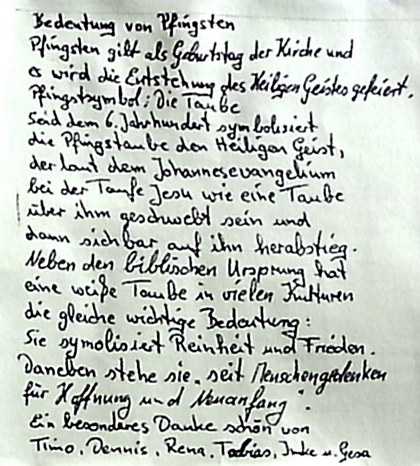 Bedeutung von Pfingsten
Pfingsten gilt als Geburtstag der Kirche und
es wird die Entstehung des Heiligen Geistes gefeiert.
Pfingstsymbol: Die Taube
Seid dem 6. Jahrhundert symbolisiert
die Pfingstaube den Heiligen Geist,
der laut dem Johannesevangelium
bei der Taufe Jesu wie eine Taube
über ihm geschwebt sein und
dann sichbar auf ihn herabstieg.
Neben den biblischen Ursprung hat
eine weiße Taube in vielen Kulturen
die gleiche wichtige Bedeutung:
Sie symolisiert Reinheit und Frieden.
Daneben stehe sie „seit Menschengedenken
für Hoffnung und Neuanfang".
Ein besonderes Danke schön von
Timo, Dennis, Rena, Tobias, Imke u. Gesa